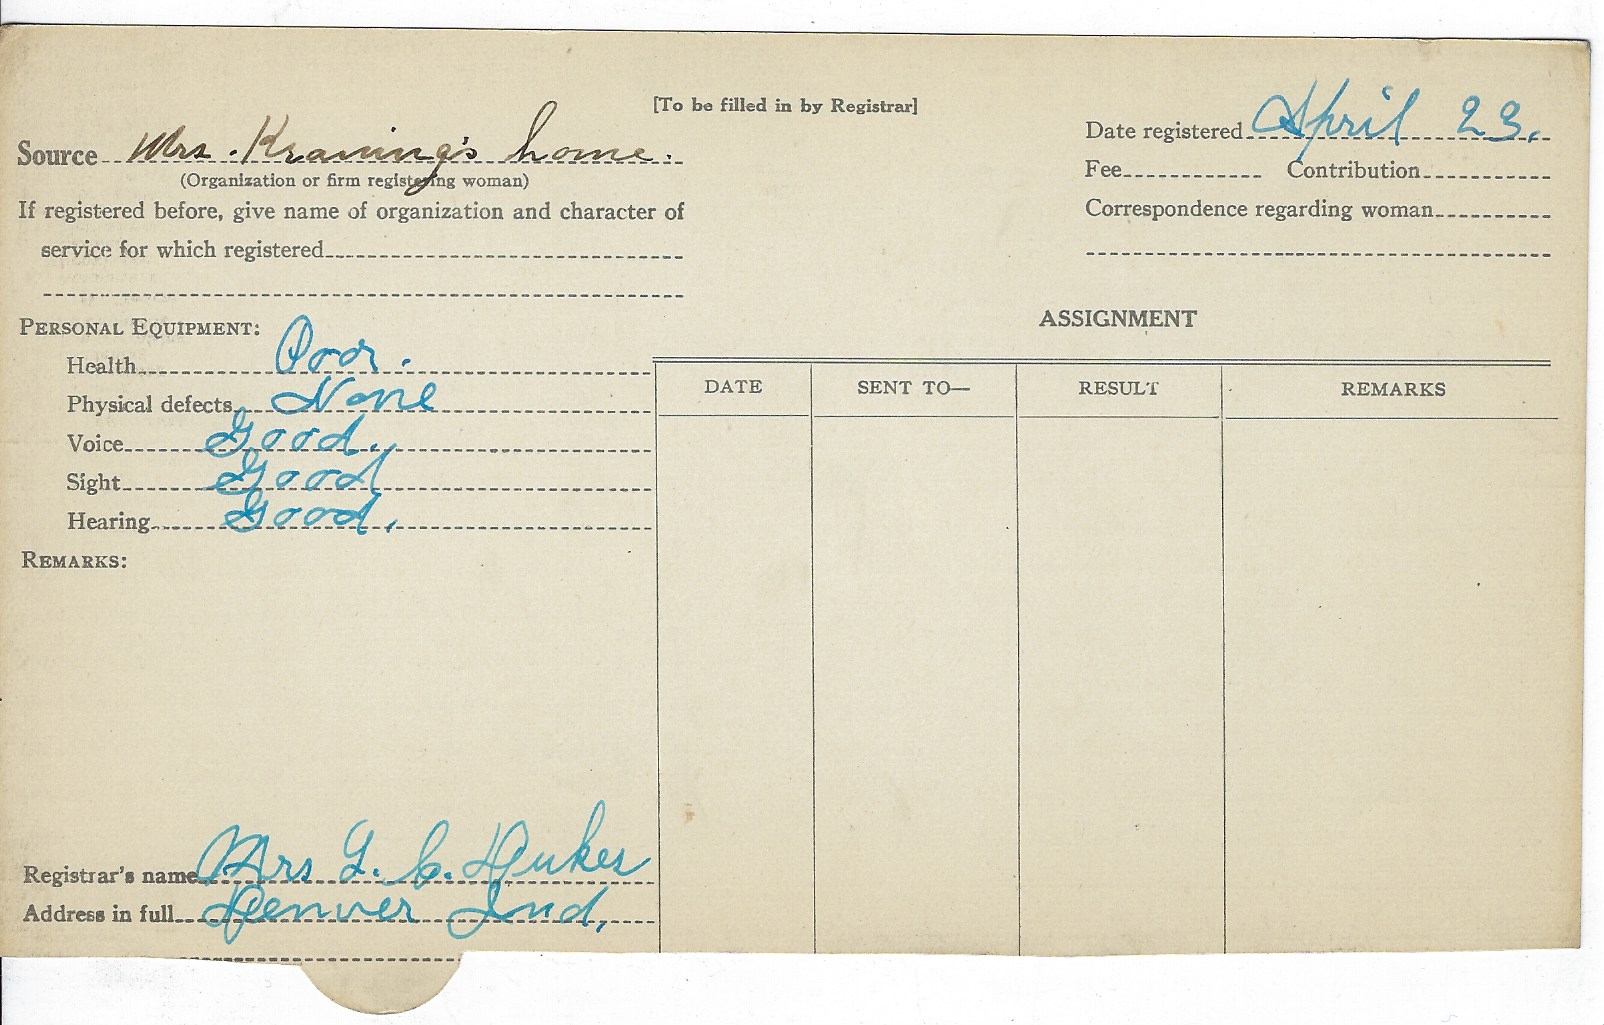 [To be filled in by Registrar]
Source Mrs. Kraning's home.
(Organization or firm registering woman)
If registered before, give name of organization and character of
service for which registered
Date registered April 23.
Fee Contribution
Correspondence regarding woman
PERSONAL EQUIPMENT:
Health Poor.
Physical defects None
Voice Good.
Sight Good
Hearing Good.
REMARKS:
Registrar's name Mrs L. C. Dukes
Address in full Denver Ind,
ASSIGNMENT
DATE SENT TO— RESULT REMARKS